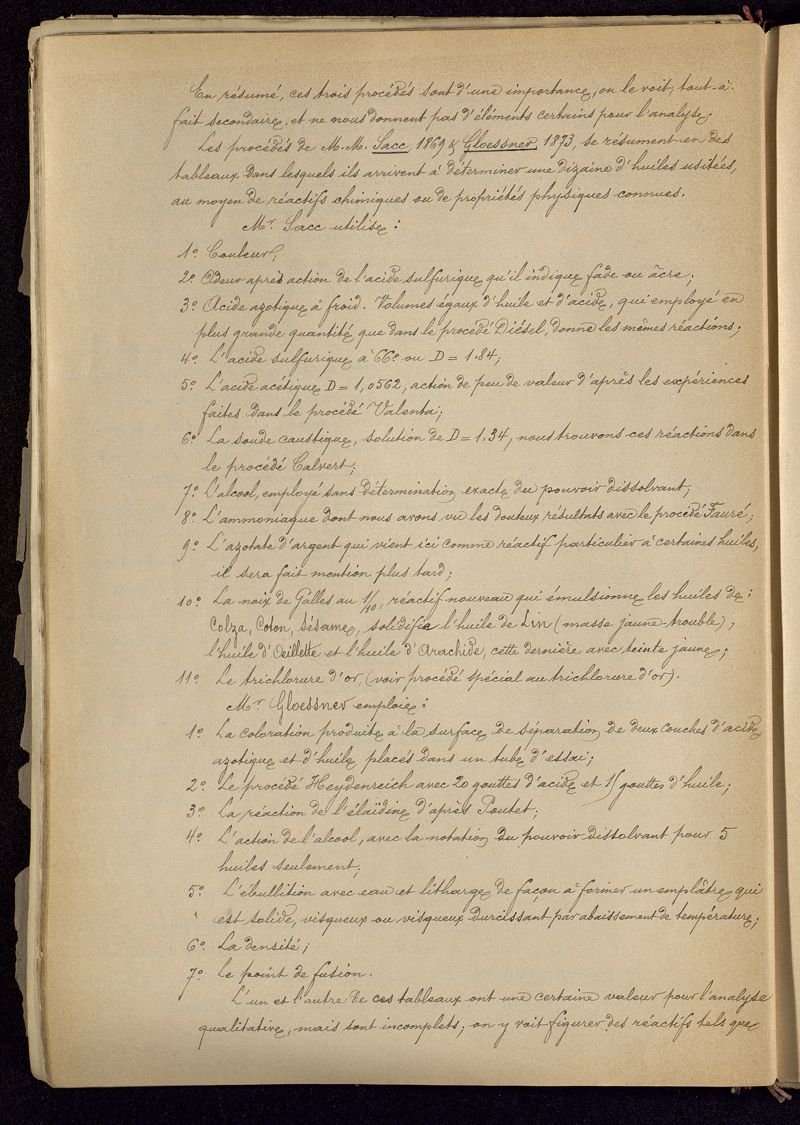 En résumé, ces trois procédés sont d'une importance, on le voit, tout-à-
fait secondaire, et ne nous donnent pas d'éléments certains pour l'analyse.
Les procédés de M.M. Sacc 1869 & Gloessner 1873, se résument en des
tableaux dans lesquels ils arrivent à déterminer une dizaine d'huiles usitées,
au moyen de réactifs chimiques ou de propriétés physiques connues.
Mr. Sacc utilise :
1º Couleur;
2º Odeur après action de l'acide sulfurique qu'il indique fade ou âcre;
3º Acide azotique à froid. Volumes égaux d'huile et d'acide, qui employé en
plus grande quantité que dans le procédé Diésel, donne les mêmes réactions;
4º L'acide sulfurique à 66º ou D = 1.84;
5º L'acide acétique D = 1,0562, action de peu de valeur d'après les expériences
faites dans le procédé Valenta;
6º La soude caustique, solution de D = 1.34, nous trouvons ces réactions dans
le procédé Calvert;
7º L'alcool, employé sans détermination exacte du pouvoir dissolvant;
8º L'ammoniaque dont nous avons vu les douteux résultats avec le procédé Fauré;
9º L'azotate d'argent qui vient ici comme réactif particulier à certaines huiles,
il sera fait mention plus tard;
10º La noix de Galles au 1/10, réactif nouveau qui émulsionne les huiles de :
Colza, Coton, Sésame, solidifie l'huile de Lin (masse jaune-trouble),
l'huile d'Œillette et l'huile d'Arachide, cette dernière avec teinte jaune;
11º Le trichlorure d'or (voir procédé spécial au trichlorure d'or).
Mr. Gloessner emploie :
1º La coloration produite à la surface de séparation de deux couches d'acide
azotique et d'huile placés dans un tube d'essai;
2º Le procédé Heydenreich avec 20 gouttes d'acide et 15 gouttes d'huile;
3º La réaction de l'élaïdine d'après Poutet;
4º L'action de l'alcool, avec la notation du pouvoir dissolvant pour 5
huiles seulement;
5º L'ébullition avec eau et litharge de façon à former un emplâtre qui
est solide, visqueux ou visqueux durcissant par abaissement de température;
6º La densité;
7º Le point de fusion.
L'un et l'autre de ces tableaux ont une certaine valeur pour l'analyse
qualitative, mais sont incomplets; on y voit figurer des réactifs tels que